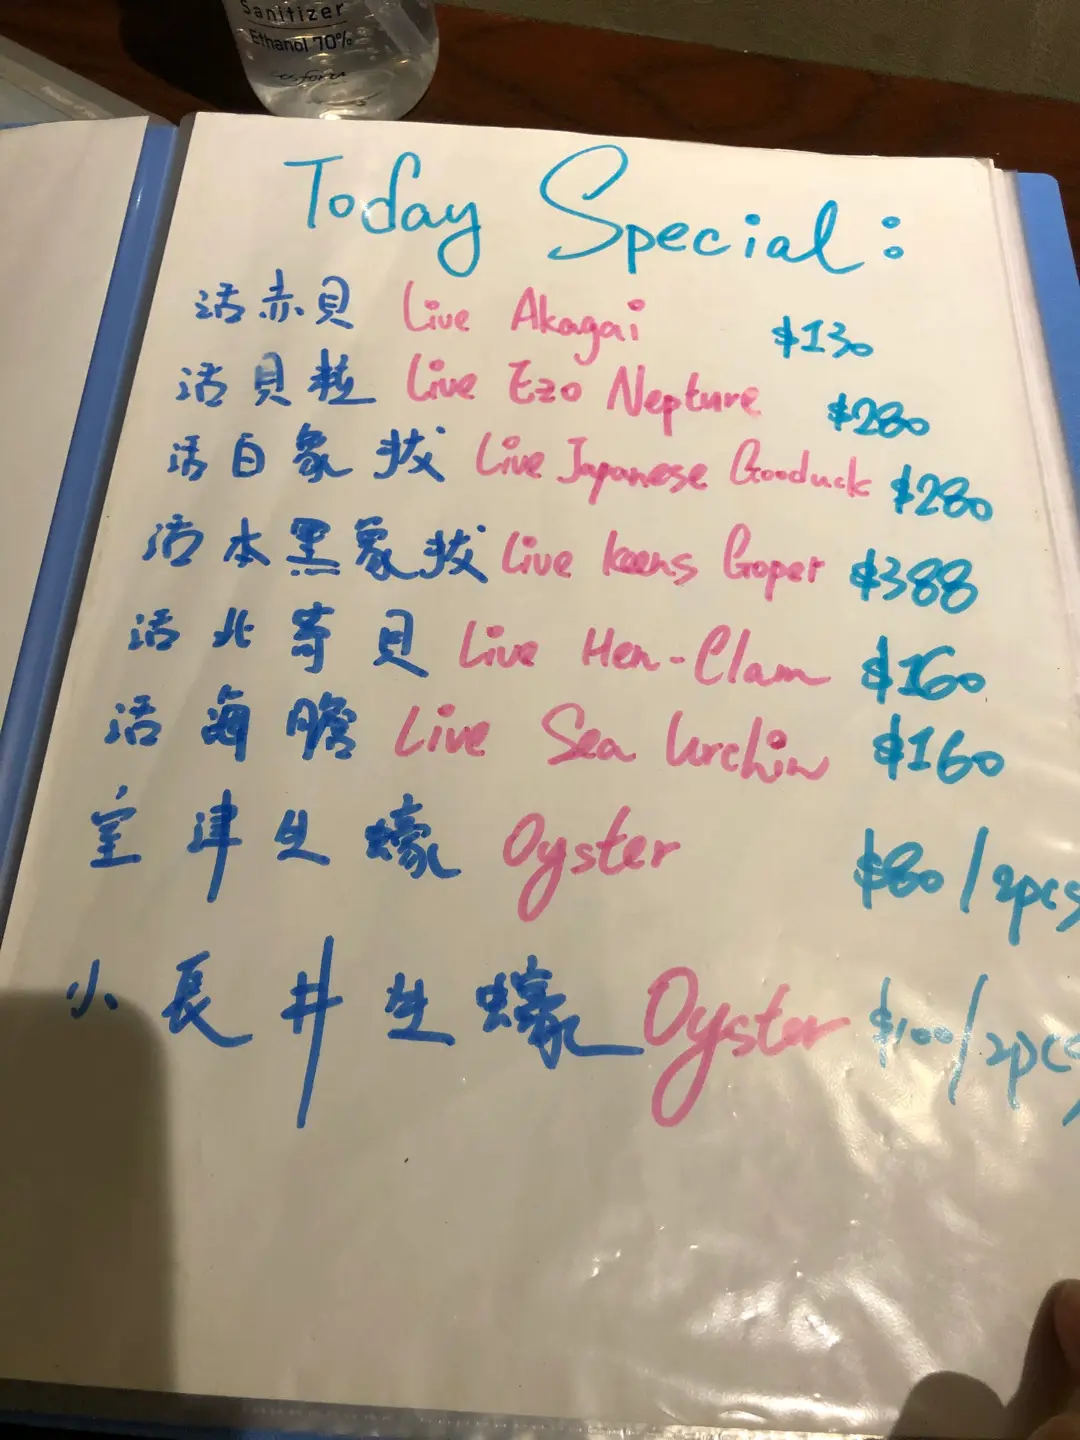 Sanitizer
Ethanol 70%
Today Special :
活赤貝 Live Akagai $130
活貝粒 Live Ezo Nepture $280
活白象拔 Live Japanese Gooduck $280
活本黑象拔 Live keens Goper $388
活北寄貝 Live Hen-Clam $160
活海膽 Live Sea Urchin $160
室津生蠔 Oyster $80/2pcs
小長井生蠔 Oyster $100/2pcs